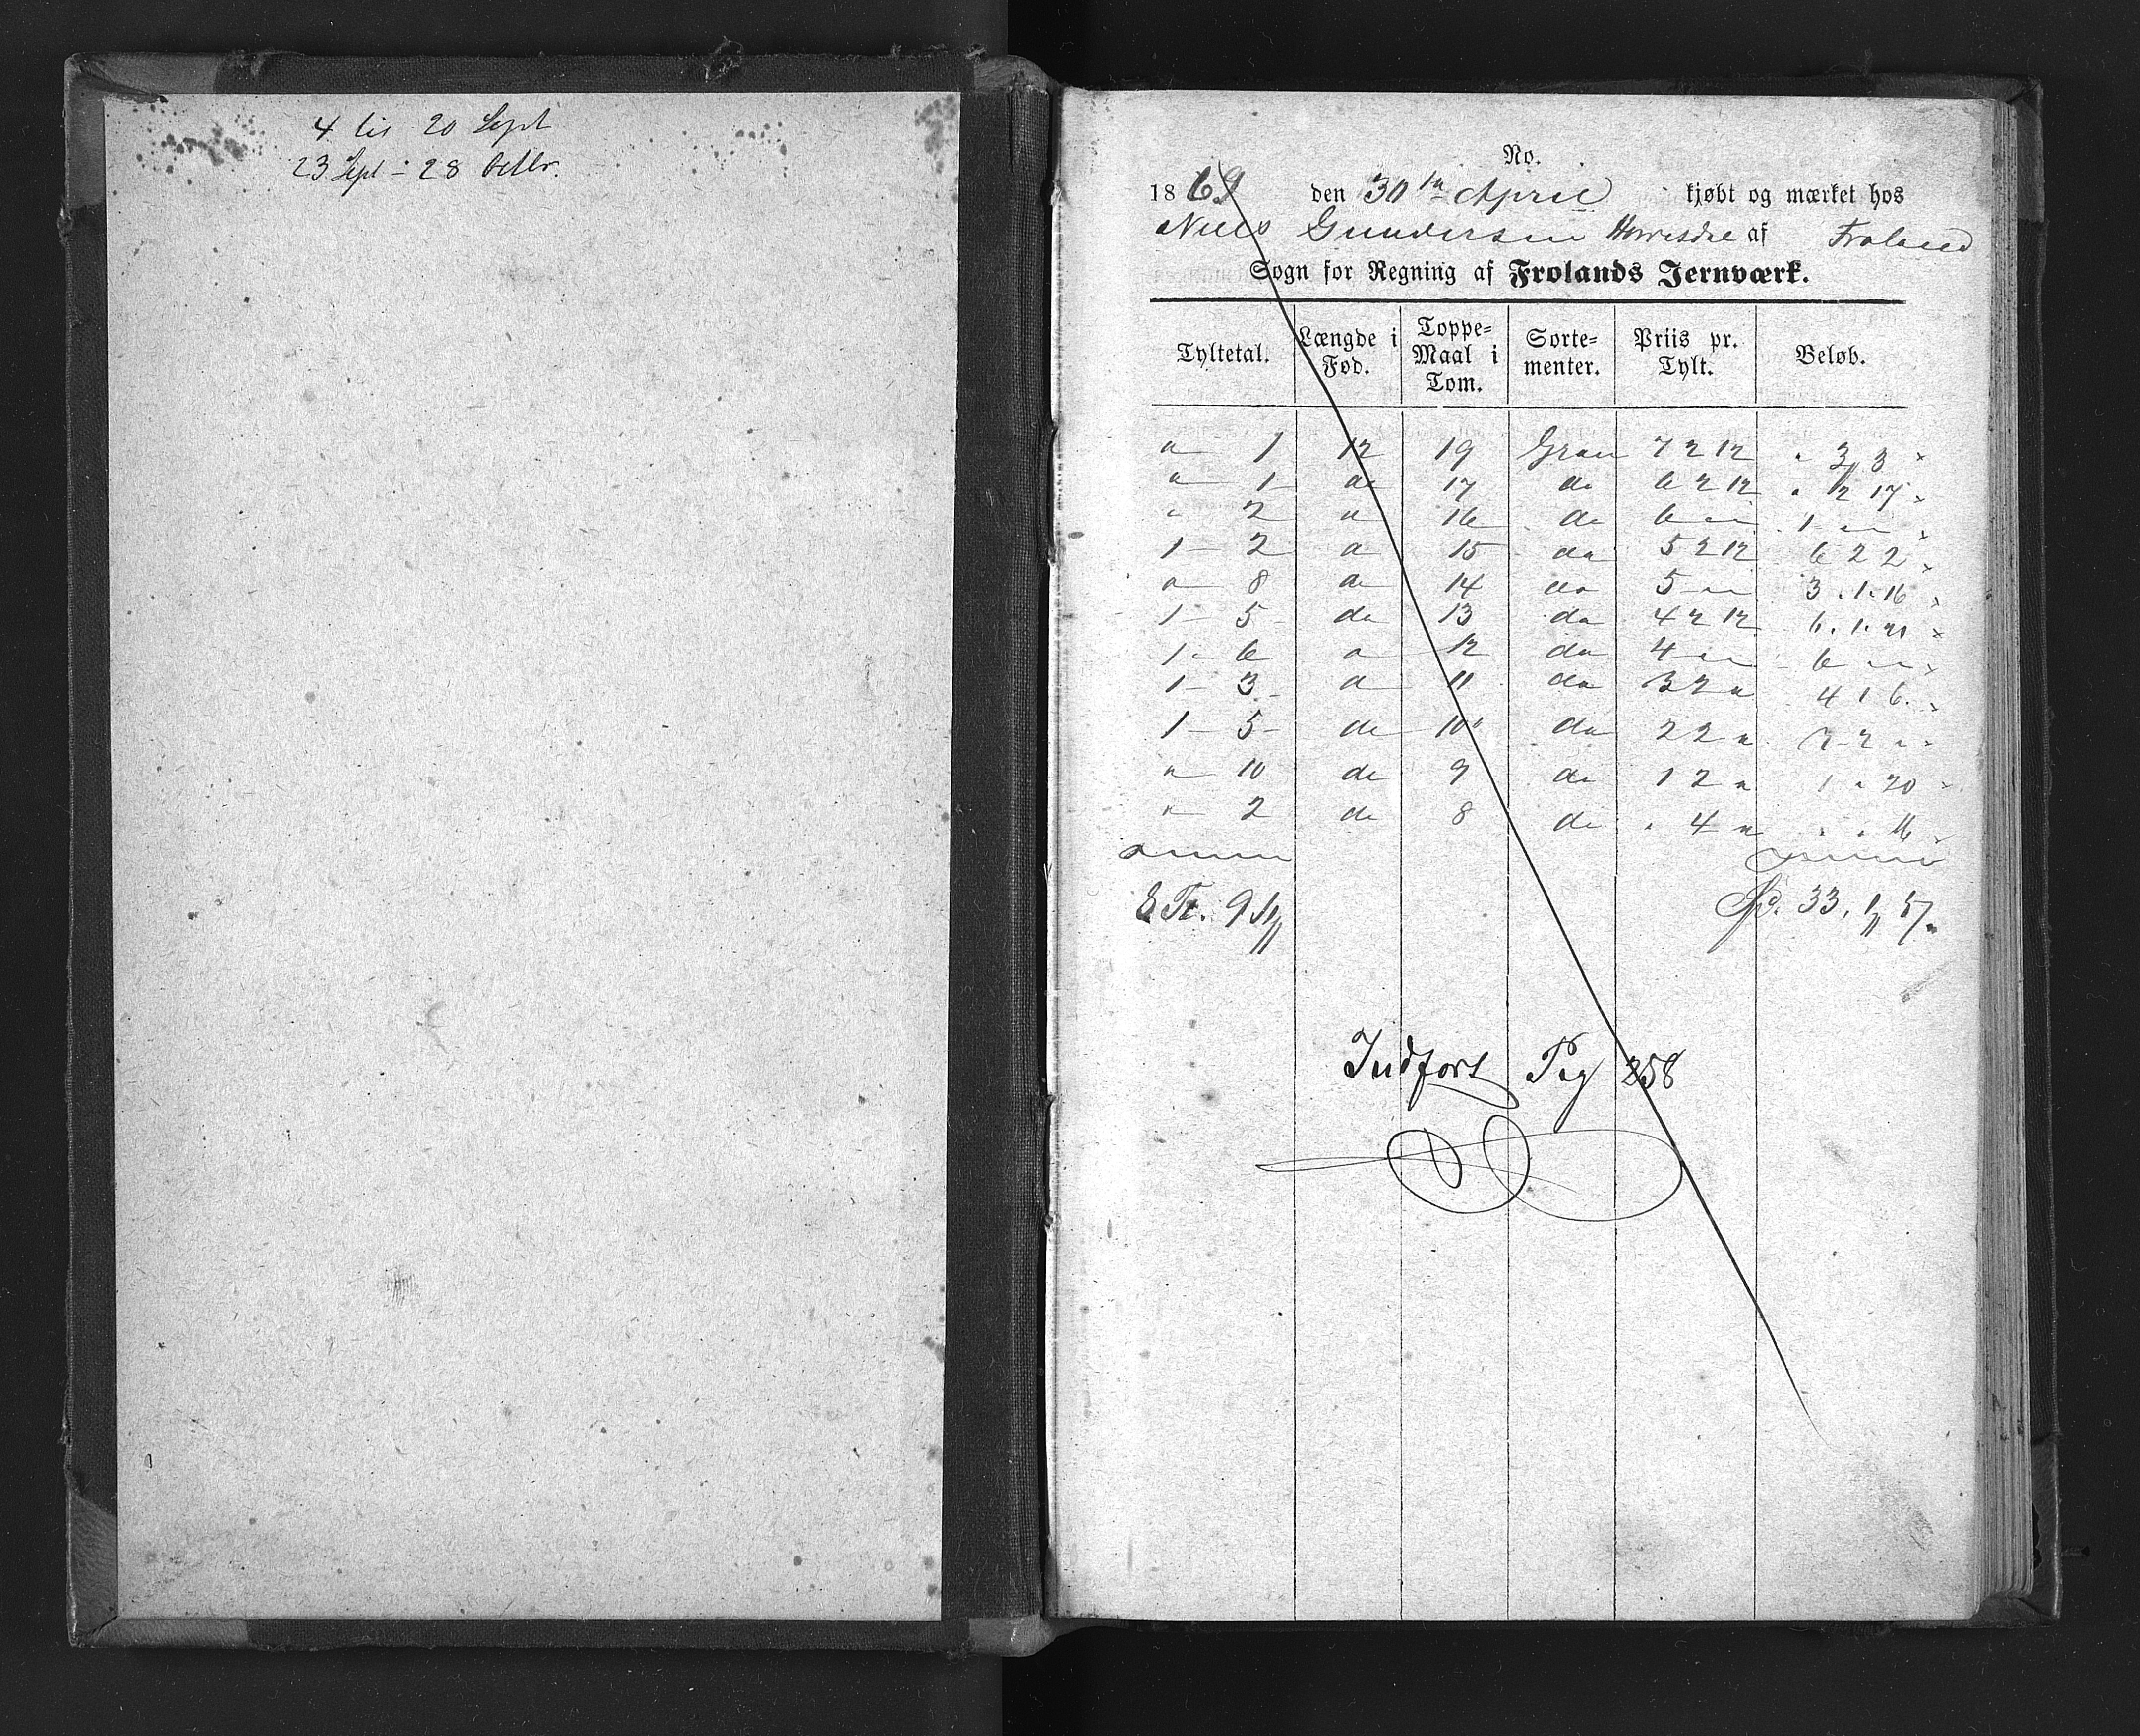 4 til 20 Sept
23 Sept - 28 Octbr.
No.
1869 den 30te April kjøbt og mærket hos
Niels Gundersen af Froland
Sogn for Regning af Frolands Jernværk.
Tyltetal. Længde i Fod. Toppe-Maal i Tom. Sorte-menter. Priis pr. Tylt. Beløb.
" 1 12 19 Gran 7 2 12 " 3 3
" 1 do 17 do 6 2 12 " 2 17
" 2 " 16 do 6 " " 1 " "
1 - 2 " 15 do 5 2 12 6 2 2
" 8 do 14 do 5 " " 3 . 1 . 16
1 - 5 do 13 do 4 2 12 6 . 1 . 21
1 - 6 " 12 do 4 " " 6 " "
1 - 3 " 11 do 3 2 " 4 1 6
1 - 5 do 10 do 2 2 " 3 2 "
" 10 do 9 do 1 2 " 1 " 20
" 2 do 8 do " 4 " " " 16
8 Tl. 9 St Spd. 33, 1, 5
Indført Pag 258